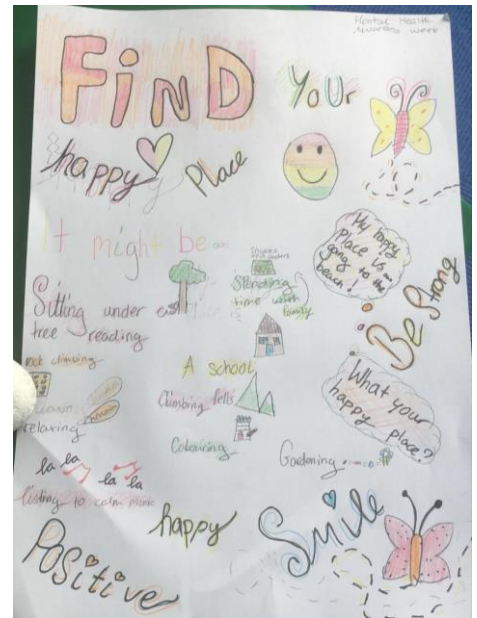 Mental Health
Awareness week
FiND
YoUr
happy Place
It might be...
My happy
Place is
going to the
beach!
Spending
time with
family
Sitting under a
tree reading
Be Strong
rock climbing
A school
Climbing fells
What your
happy place?
relaxing
Colouring
Gardening
la la
la la
listing to calm music
happy
Smile
Positive